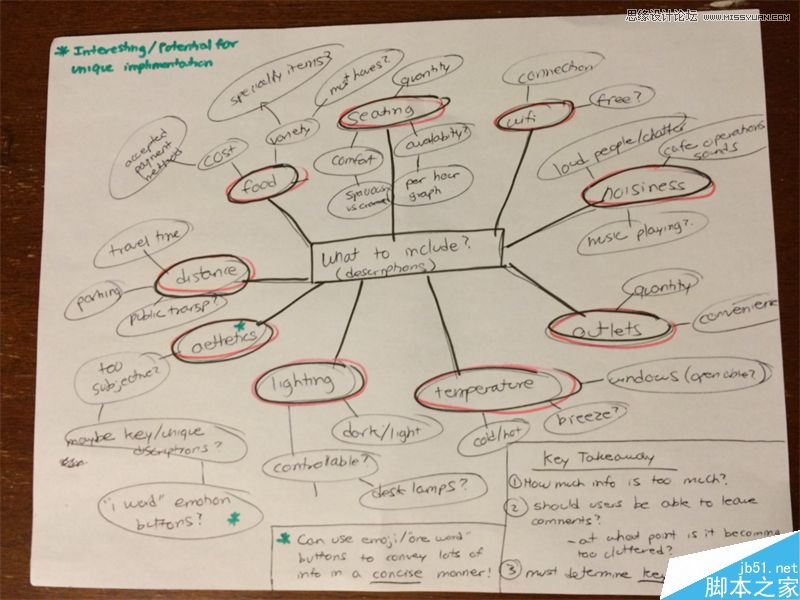 思缘设计论坛 WWW.MISSYUAN.COM
* Interesting/Potential for
unique implimentation
What to include?
(descriptions)
food
cost
accepted
payment
method
variety
specialty items?
must haves?
Seating
quantity
comfort
spacious
vs cramped
availability?
per hour
graph
wifi
connection
free?
noisiness
loud people/chatter
cafe operations
sounds
music playing?
outlets
quantity
convenienc
temperature
windows (openable?)
breeze?
cold/hot
lighting
dark/light
controllable?
desk lamps?
aethetics
*
too
subjective?
maybe key/unique
discriptions?
"1 word" emotion
buttons? *
distance
travel time
parking
public transp?
* Can use emoji/"one word"
buttons to convey lots of
info in a concise manner!
Key Takeaway
① How much info is too much?
② should users be able to leave
comments?
- at what point is it becoming
too cluttered?
③ must determine key
jb51.net
脚本之家